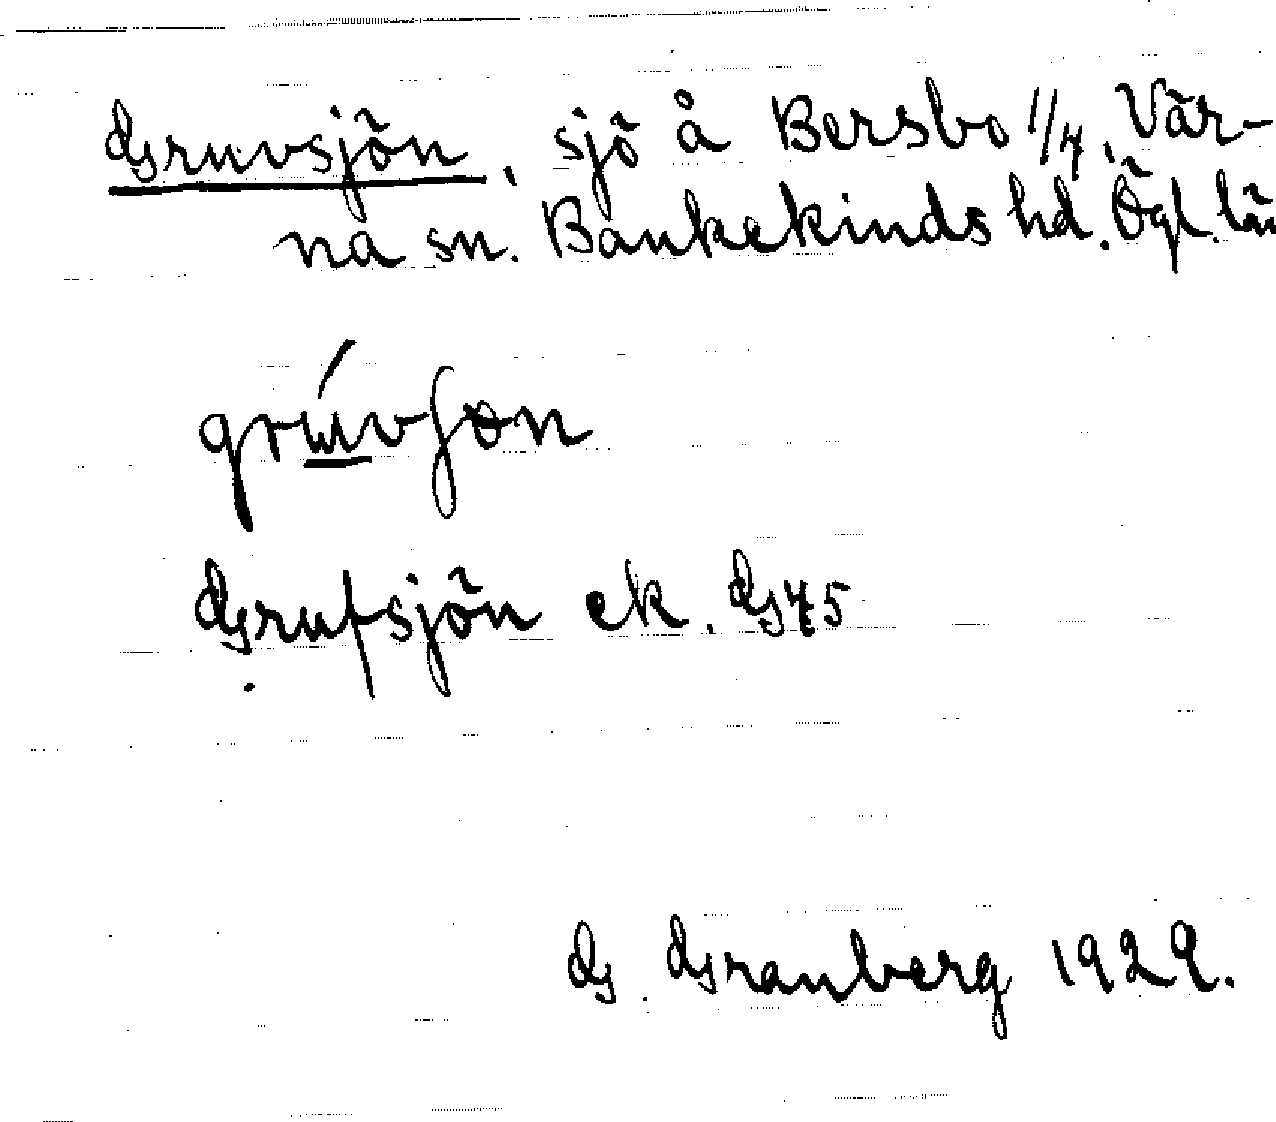 Gruvsjön, sjö å Bersbo 1/4, Vär-
na sn. Bankekinds hd. Ögl. län
grúvʃɵn
Grufsjön ek. G45
G. Granberg 1929.